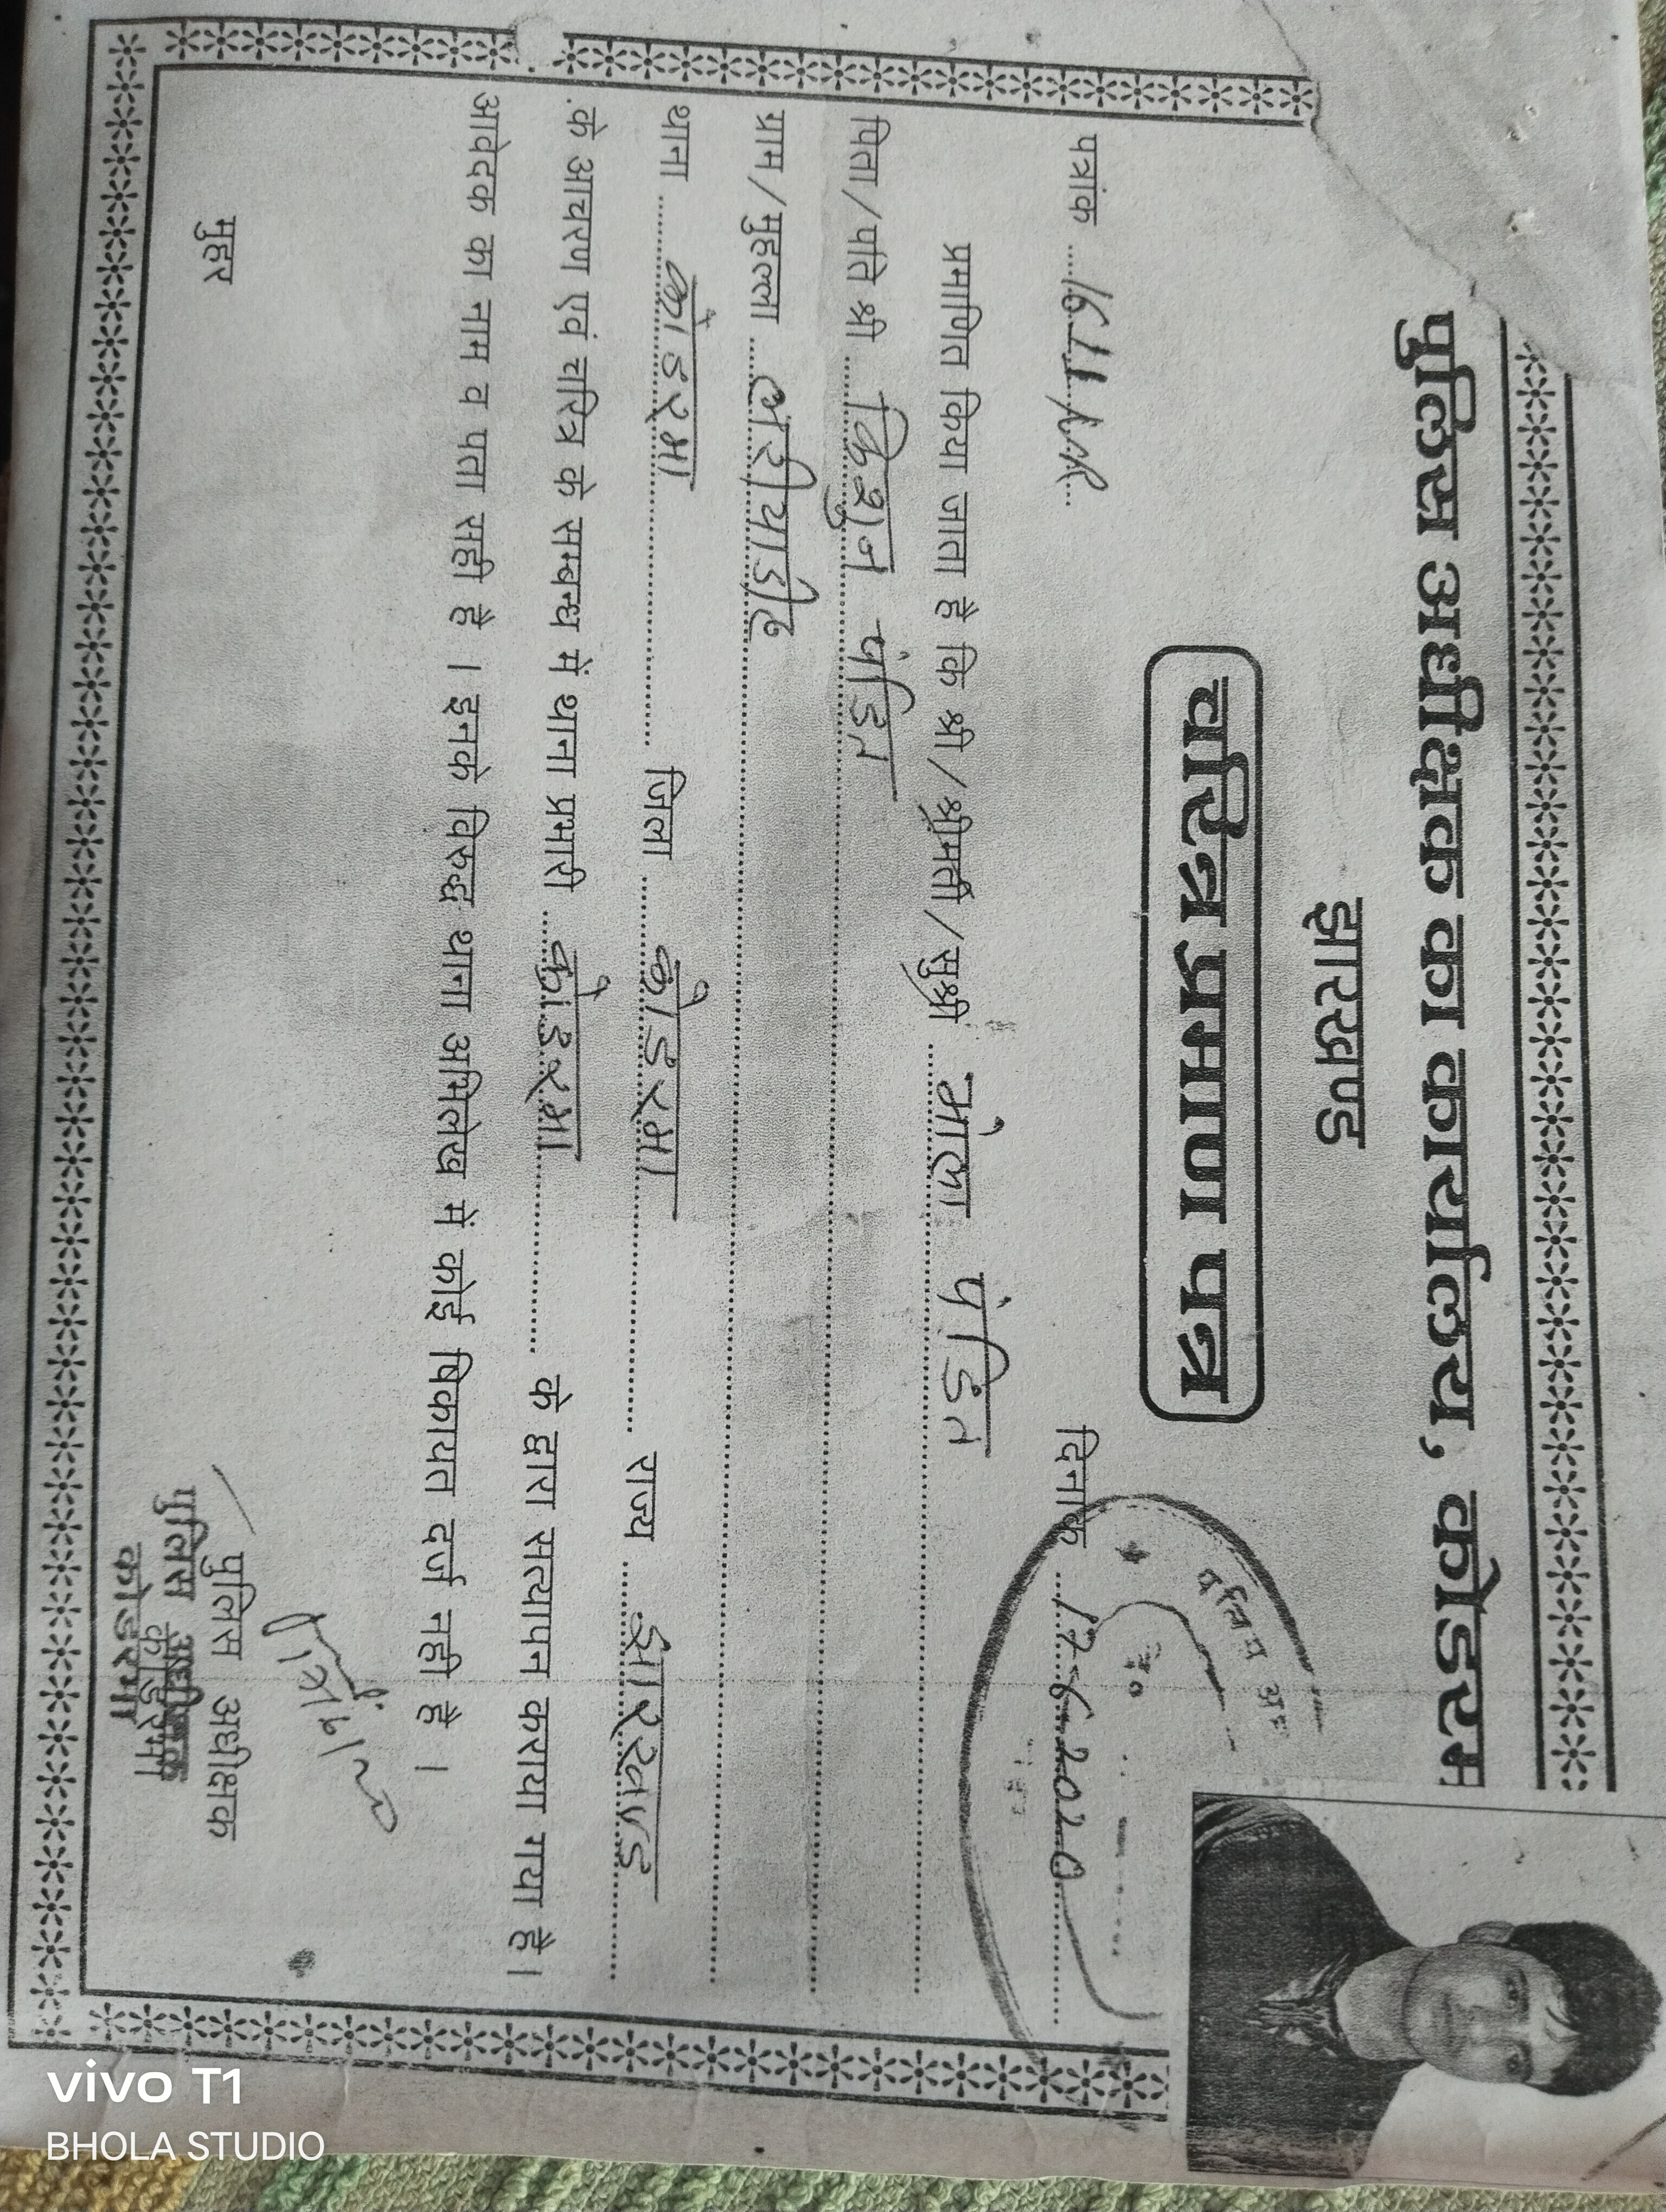 पुलिस अधीक्षक का कार्यालय, कोडरम
झारखण्ड
चरित्र प्रमाण पत्र
पुलिस अ
पत्रांक
दिनांक 17-6-2020
प्रमाणित किया जाता है कि श्री/श्रीमती/सुश्री भोला पंडित
पिता/पति श्री किशुन पंडित
ग्राम/मुहल्ला
थाना कोडरमा जिला कोडरमा राज्य झारखण्ड
के आचरण एवं चरित्र के सम्बन्ध में थाना प्रभारी कोडरमा के द्वारा सत्यापन कराया गया है।
आवेदक का नाम व पता सही है । इनके विरुद्ध थाना अभिलेख में कोई षिकायत दर्ज नही है ।
मुहर
पुलिस अधीक्षक
कोडरमा
पुलिस अधीक्षक
कोडरमा
vivo T1
BHOLA STUDIO